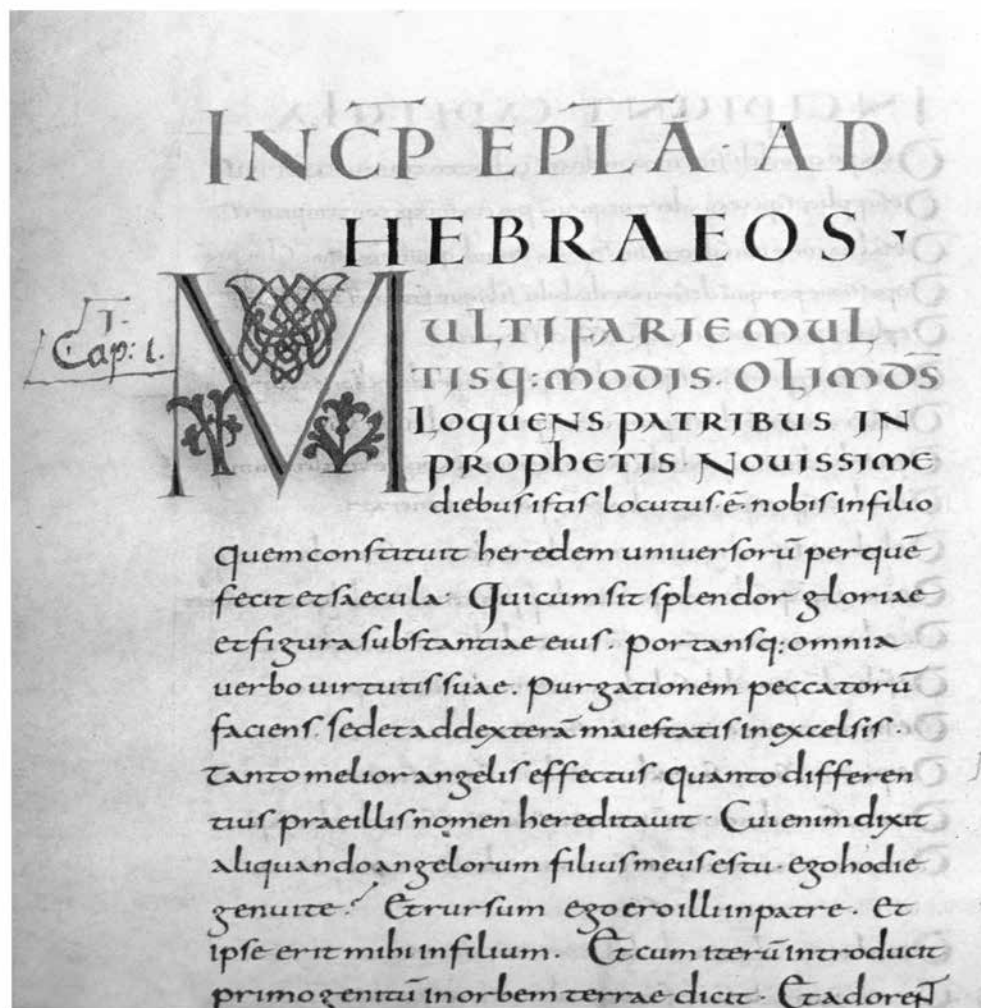 INCP EPLĀ · AD
HEBRAEOS ·
1.
Cap: 1.
MULTIFARIE MUL
TISQ: MODIS · OLIM DS̄
LOQUENS PATRIBUS IN
PROPHETIS NOUISSIME
diebus istis locutus · ē · nobis in filio
quem constituit heredem uniuersorū per quē
fecit et saecula · Qui cum sit splendor gloriae
et figura substantiae eius · portansq: omnia
uerbo uirtutis suae · purgationem peccatorū
faciens · sedet ad dexterā maiestatis in excelsis ·
tanto melior angelis effectus · quanto differen
tius prae illis nomen hereditauit · Cui enim dixit
aliquando angelorum filius meus es tu · ego hodie
genui te · Et rursum ego ero illi in patre · Et
ipse erit mihi in filium · Et cum iterū introducit
primogenitū in orbem terrae dicit · Et adorent